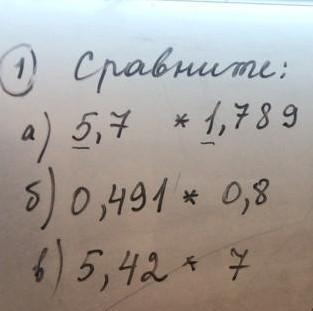 1) Сравните:
а) 5,7 * 1,789
б) 0,491 * 0,8
в) 5,42 * 7